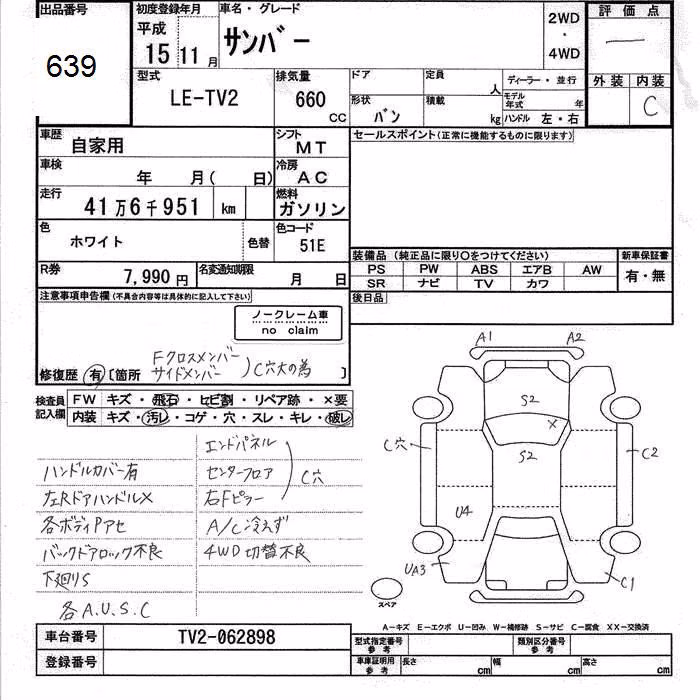 出品番号
639
初度登録年月
平成
15 11 月
車名・グレード
サンバー
2WD
・
4WD
評価点
―
外装 内装
C
型式
LE-TV2
排気量
660
CC
ドア
定員
人
ディーラー・並行
モデル年式 年
形状
バン
積載
kg
ハンドル 左・右
車歴
自家用
シフト
MT
セールスポイント(正常に機能するものに限ります)
車検
年 月( 日)
冷房
AC
走行
41万6千951 km
燃料
ガソリン
色
ホワイト
色替
色コード
51E
装備品 (純正品に限り○をつけてください)
新車保証書
PS PW ABS エアB AW
有・無
SR ナビ TV カワ
R券
7,990 円
名変通知期限
月 日
後日品
注意事項申告欄(不具合内容等は具体的に記入して下さい)
ノークレーム車
no claim
修復歴 有 〔箇所 Fクロスメンバー
サイドメンバー
C穴大の為 〕
検査員
記入欄
FW キズ・飛石・ヒビ割・リペア跡・×要
内装 キズ・汚レ・コゲ・穴・スレ・キレ・破レ
エンドパネル
ハンドルカバー有 センターフロア
C穴
左Rドアハンドル× 右Fピラー
各ボディPアセ A/C冷えず
バックドアロック不良 4WD切替不良
下廻りS
各A.U.S.C
A1 A2
S2
×
C穴
S2
C2
U4
UA3
C1
スペア
A―キズ E―エクボ U―凹み W―補修跡 S―サビ C―腐食 XX―交換済
車台番号
TV2-062898
型式指定番号
参考
類別区分番号
参考
登録番号
車庫証明用
参考
長さ cm
幅 cm
高さ cm